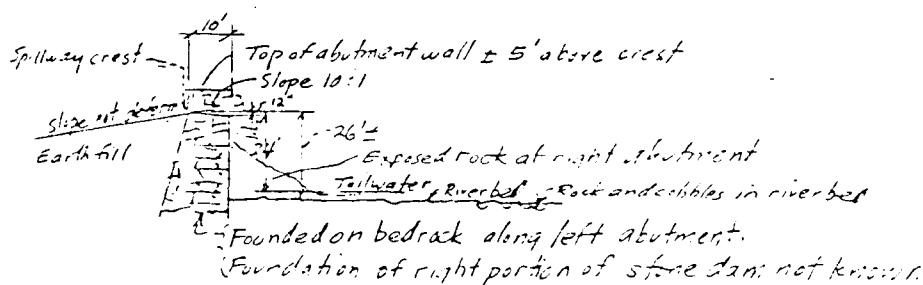 10'
Spillway crest
Top of abutment wall ± 5' above crest
Slope 10:1
12"
Slope not
Earth fill
24'
26'±
Exposed rock at right abutment
Tailwater
Riverbed
Rock and cobbles in riverbed
Founded on bedrock along left abutment.
Foundation of right portion of stone dam not known.